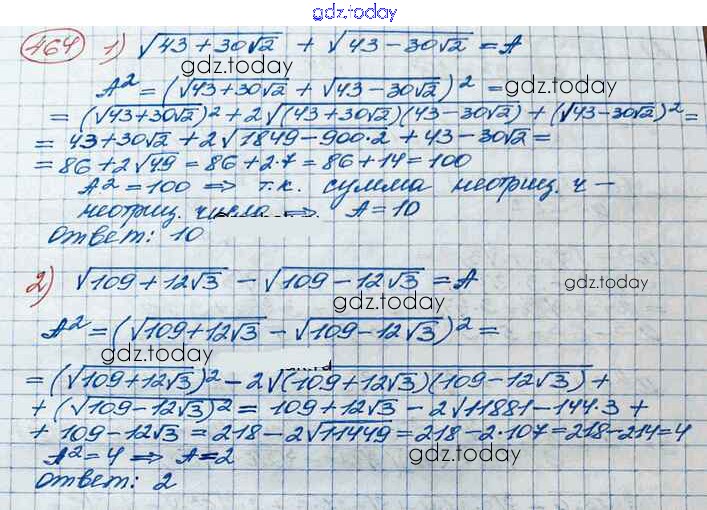 gdz.today
464 1) √43+30√2 + √43-30√2 = A
gdz.today
A² = (√43+30√2 + √43-30√2)² =
gdz.today
= (√43+30√2)² + 2√(43+30√2)(43-30√2) + (√43-30√2)² =
= 43+30√2 + 2√1849-900·2 + 43-30√2 =
= 86+2√49 = 86+2·7 = 86+14 = 100
A² = 100 ⇒ т.к. сумма неотриц. ч-
неотриц. числа ⇒ A = 10
gdz.today
Ответ: 10
2) √109+12√3 - √109-12√3 = A
gdz.today
gdz.today
A² = (√109+12√3 - √109-12√3)² =
gdz.today
= (√109+12√3)² - 2√(109+12√3)(109-12√3) +
+ (√109-12√3)² = 109+12√3 - 2√11881-144·3 +
+ 109-12√3 = 218-2√11449 = 218-2·107 = 218-214 = 4
A² = 4 ⇒ A = 2
gdz.today
Ответ: 2